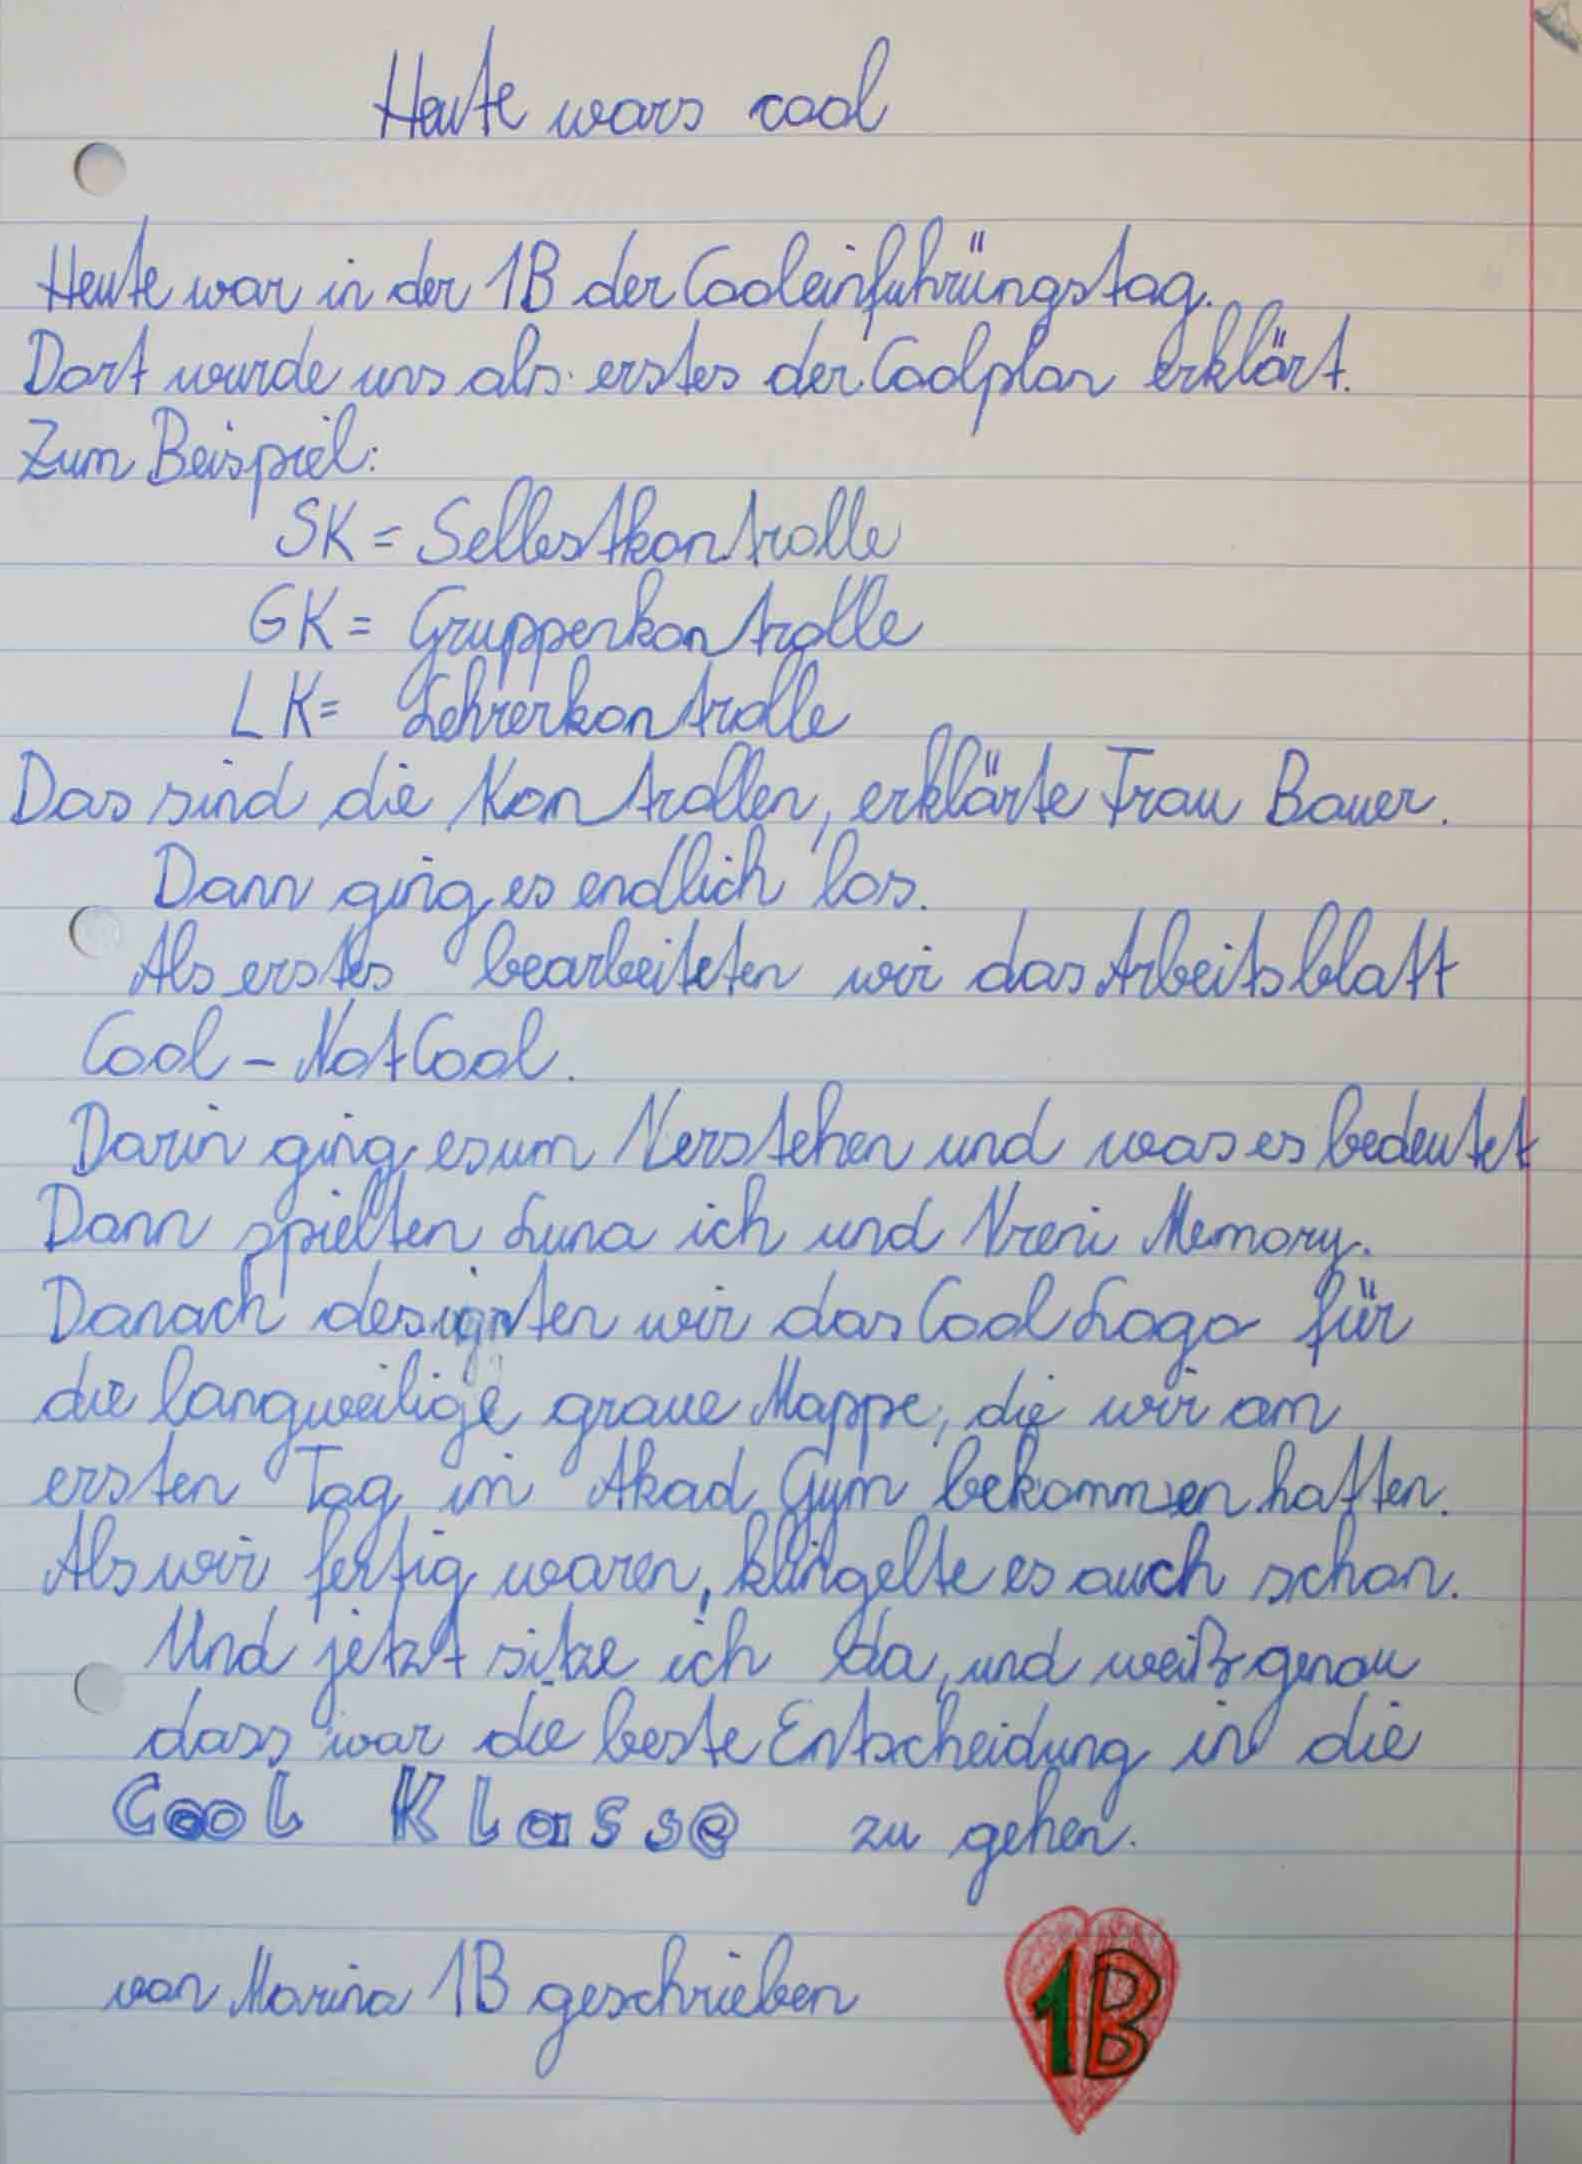 Heute wars cool
Heute war in der 1B der Cooleinfuhrüngstag.
Dort wurde uns als erstes der Coolplan erklärt.
Zum Beispiel:
SK = Selbestkontrolle
GK = Gruppenkontrolle
LK = Lehrerkontrolle
Das sind die Kontrollen, erklärte Frau Bauer.
Dann ging es endlich los.
Als erstes bearbeiteten wir das Arbeitsblatt
Cool – Not Cool.
Darin ging es um Verstehen und was es bedeutet
Dann spielten Luna ich und Vreni Memory.
Danach designten wir das Cool Logo für
die langweilige graue Mappe, die wir am
ersten Tag im Akad Gym bekommen hatten.
Als wir fertig waren, klingelte es auch schon.
Und jetzt sitze ich da, und weiß genau
dass war die beste Entscheidung in die
Cool Klasse zu gehen.
von Marina 1B geschrieben
1B